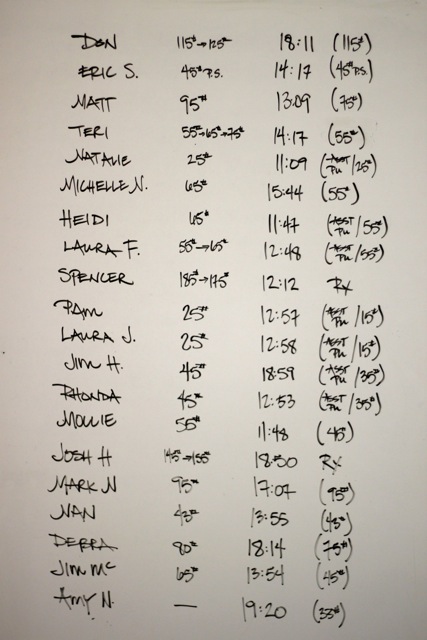 DON 115# → 125# 18:11 (115#)
ERIC S. 45# P.S. 14:17 (45# P.S.)
MATT 95# 13:09 (75#)
TERI 55# → 65# → 75# 14:17 (55#)
NATALIE 25# 11:09 (ASST PU /25#)
MICHELLE N. 65# 15:44 (55#)
HEIDI 65# 11:47 (ASST PU /55#)
LAURA F. 55# → 65# 12:48 (ASST PU /55#)
SPENCER 185# → 175# 12:12 RX
PAM 25# 12:57 (ASST PU /15#)
LAURA J. 25# 12:58 (ASST PU /15#)
JIM H. 45# 18:59 (ASST PU /35#)
RHONDA 45# 12:53 (ASST PU /35#)
MOLLIE 55# 11:48 (45#)
JOSH H 145# → 135# 18:50 RX
MARK N 95# 17:07 (95#)
NAN 43# 13:55 (43#)
DEBRA 80# 18:14 (75#)
JIM MC 65# 13:54 (45#)
AMY N. — 19:20 (35#)